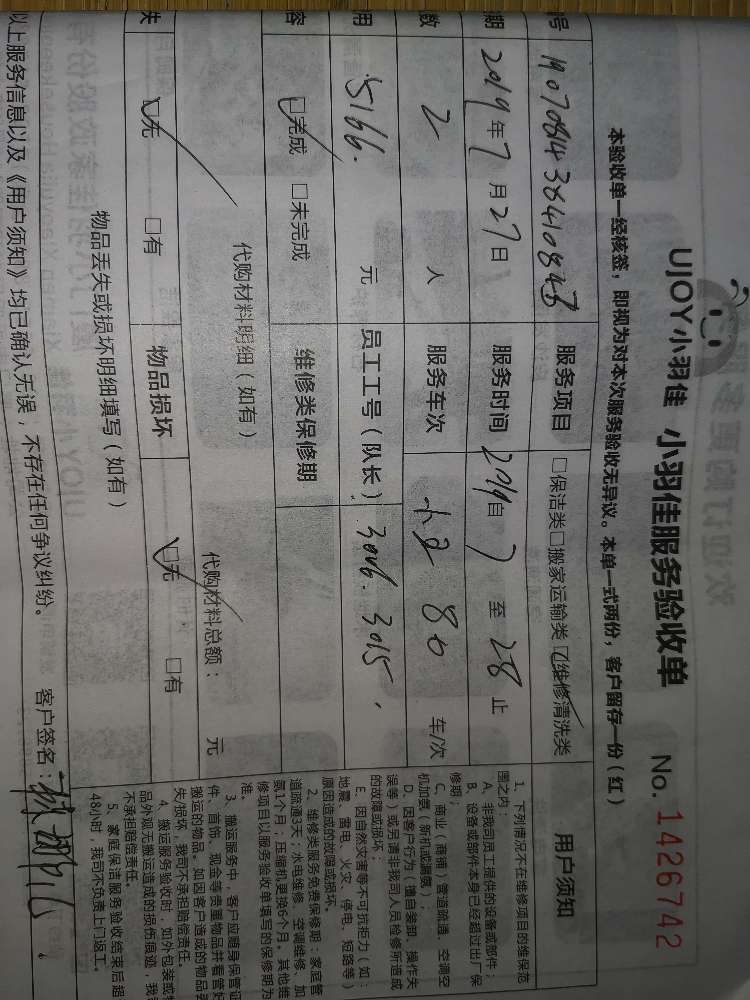 UJOY小羽佳 小羽佳服务验收单 No. 1426742
本验收单一经核签，即视为对本次服务验收无异议。本单一式两份，客户留存一份（红）
号 服务项目 □保洁类□搬家运输类☑维修清洗类
期 2019年7月27日 服务时间 2019自7至28止
数 2 人 服务车次 80 车/次
用 5166. 元 员工工号（队长） 3046. 3015
容 ☑完成 □未完成 维修类保修期
代购材料明细（如有） 代购材料总额： 元
失 ☑无 □有 物品损坏 ☑无 □有
物品丢失或损坏明细填写（如有）
以上服务信息以及《用户须知》均已确认无误，不存在任何争议纠纷。 客户签名：
用户须知
1、下列情况不在维修项目的维保范
围之内：
A、非我司员工提供的设备或部件；
B、设备或部件本身已经超过出厂保
修期；
C、商业（商铺）管道疏通、空调空
机加氨（新机或漏氨）；
D、因客户行为（擅自装卸、操作失
误等）或另请非我司人员检修所造成
的故障或损坏；
E、因自然灾害等不可抗拒力（如：
地震、雷电、火灾、停电、短路等）
原因造成的故障或损坏。
2、维修类服务免费保修期：家庭管
道疏通3天；水电维修、空调维修、加
氨1个月；压缩机更换6个月。其他维
修项目以服务验收单填写的保修期为
准。
3、搬运服务中，客户应随身保管证
件、首饰、现金等贵重物品并看管好
搬运的物品。如因客户造成的物品丢
失/损坏，我司不承担赔偿责任。
4、搬运服务验收时，如外包装或物
品外观无搬运造成的损伤痕迹，我司
不承担赔偿责任。
5、家庭保洁服务验收结束后超
48小时，我司不负责上门返工。